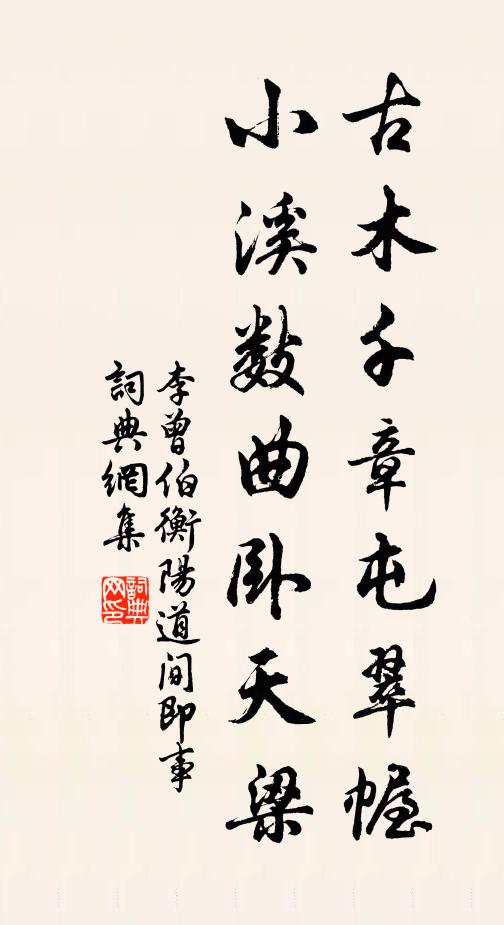 古木千章屯翠幄
小溪數曲卧天梁
李曾伯衡陽道間即事
詞典網集
詞典网印